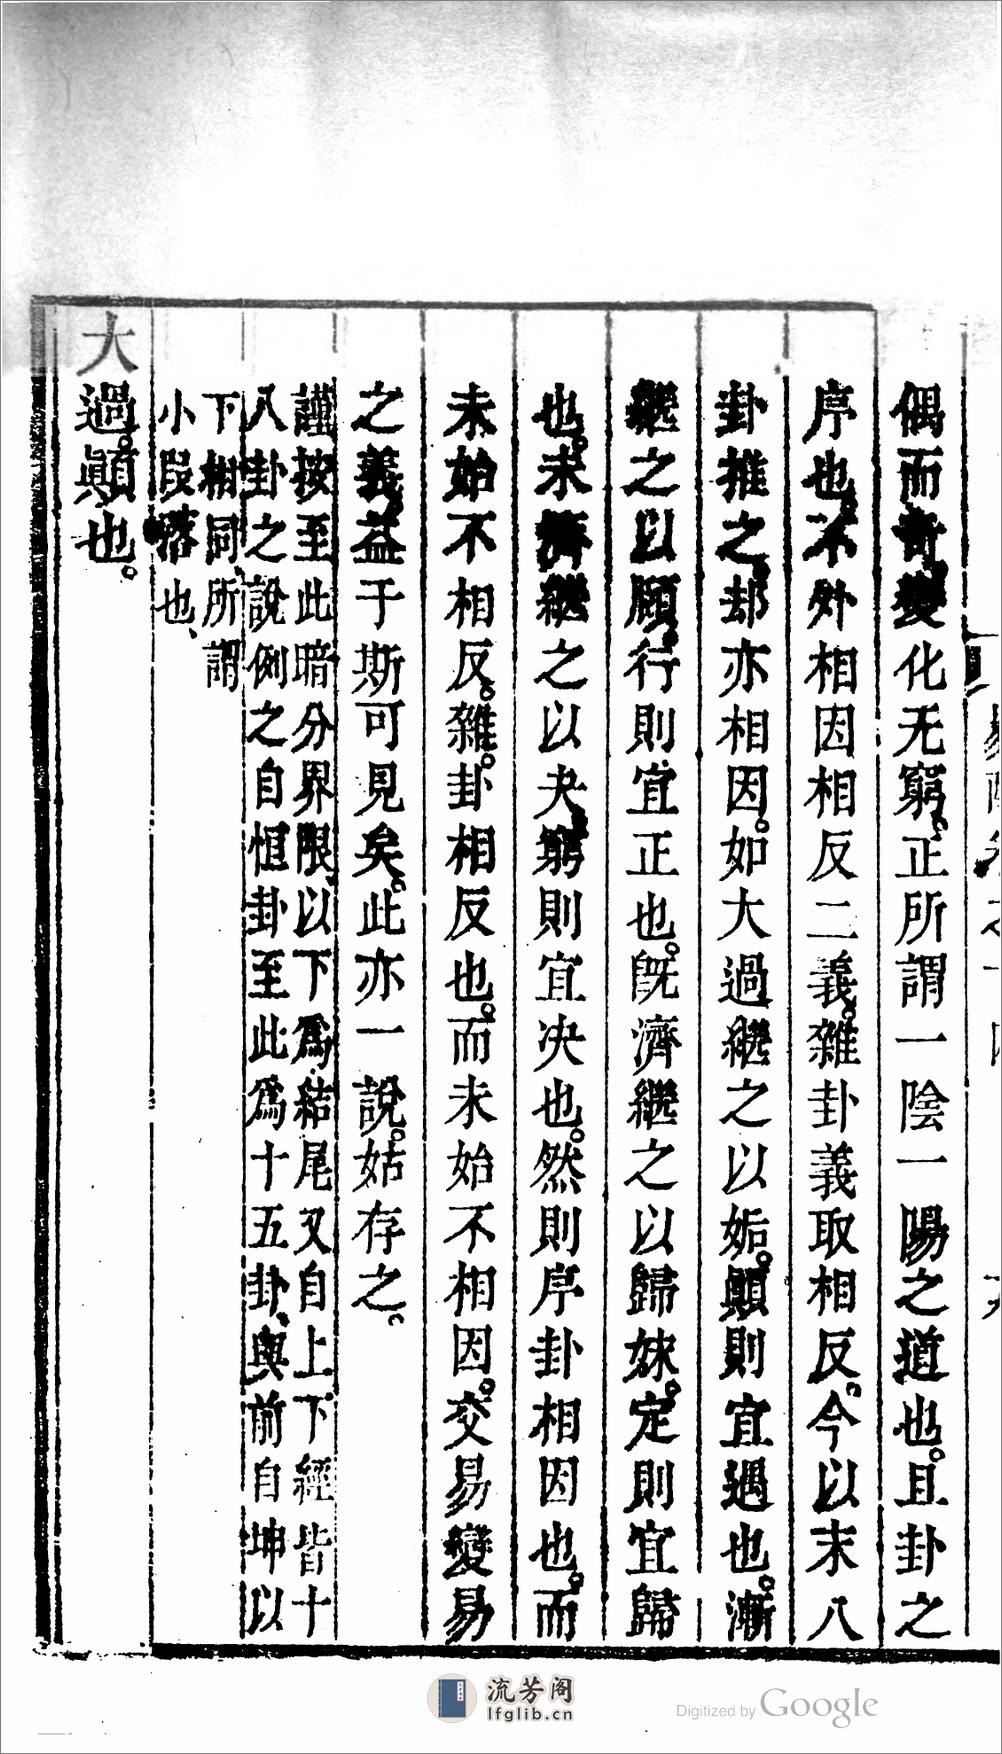 偶而奇變化无窮。正所謂一陰一陽之道也。且卦之
序也。不外相因相反二義。雜卦義取相反。今以末八
卦推之。却亦相因。如大過繼之以姤。顚則宜遇也。漸
繼之以頤。行則宜正也。旣濟繼之以歸妹。定則宜歸
也。未濟繼之以夬。窮則宜决也。然則序卦相因也。而
未始不相反。雜卦相反也。而未始不相因。交易變易
之義。益于斯可見矣。此亦一說。姑存之。
謹按至此暗分界限、以下爲結尾又自上下經皆十
八卦之說例之自恒卦至此爲十五卦、與前自坤以
下相同、所謂
小段落也、
大過。顚也。
流芳阁
lfglib.cn
Digitized by Google